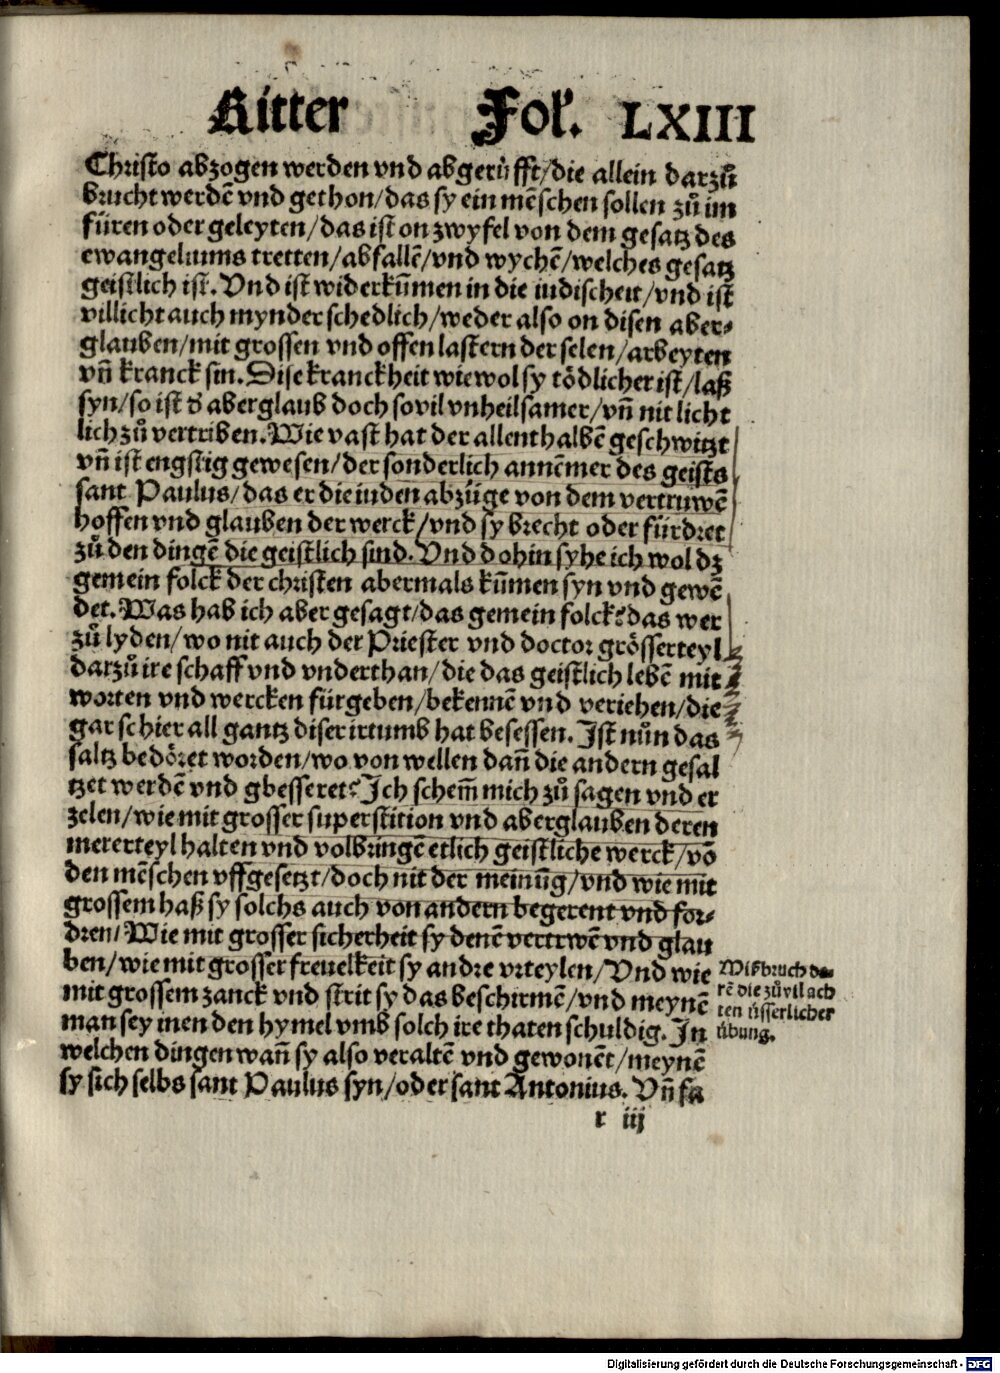 Ritter Fol. LXIII
Christo abzogen werden vnd abgerüfft/die allein darzů
brucht werdē vnd gethon/das sy ein mēschen sollen zů im
füren oder geleyten/das ist on zwyfel von dem gesatz des
ewangeliums tretten/abfallē/vnd wychē/welches gesatz
geistlich ist. Vnd ist widerkūmen in die iudischeit/vnd ist
villicht auch mynder schedlich/weder also on disen aber⸗
glauben/mit grossen vnd offen lastern der selen/arbeyten
vn̄ kranck sin. Dise kranckheit wiewol sy tödlicher ist/laß
syn/so ist d' aberglaub doch sovil vnheilsamer/vn̄ nit licht
lich zů vertriben. Wie vast hat der allenthalbē geschwitzt
vn̄ ist engstig gewesen/der sonderlich annēmer des geists
sant Paulus/das er die iuden abzüge von dem vertruwē
hoffen vnd glauben der werck/vnd sy brecht oder fürdret
zů den dingē die geistlich sind. Vnd dohin syhe ich wol dz
gemein folck der christen abermals kūmen syn vnd gewē
det. Was hab ich aber gesagt/das gemein folck? das wer
zů lyden/wo nit auch der Priester vnd doctor grösserteyl
darzů ire schaff vnd vnderthan/die das geistlich lebē mit
worten vnd wercken fürgeben/bekennē vnd veriehen/die
gar schier all gantz diser irtumb hat besessen. Ist nůn das
saltz bedöret worden/wo von wellen dan̄ die andern gesal
tzet werdē vnd gbesseret? Ich schem̄ mich zů sagen vnd er
zelen/wie mit grosser superstition vnd aberglauben deren
mererteyl halten vnd volbringē etlich geistliche werck/vō
den mēschen vffgesetzt/doch nit der meinūg/vnd wie mit
grossem haß sy solchs auch von andern begerent vnd for⸗
dren/Wie mit grosser sicherheit sy denē vertrwē vnd glau
ben/wie mit grosser freuelkeit sy andre vrteylen/Vnd wie
mit grossem zanck vnd strit sy das beschirmē/vnd meynē
man sey inen den hymel vmb solch ire thaten schuldig. In
welchen dingen wan̄ sy also veraltē vnd gewonēt/meynē
sy sich selbs sant Paulus syn/oder sant Antonius. Vn̄ fa
Miszbruch de⸗
rē die zůvil ach
ten üsserlicher
übung.
r iij
Digitalisierung gefördert durch die Deutsche Forschungsgemeinschaft - DFG